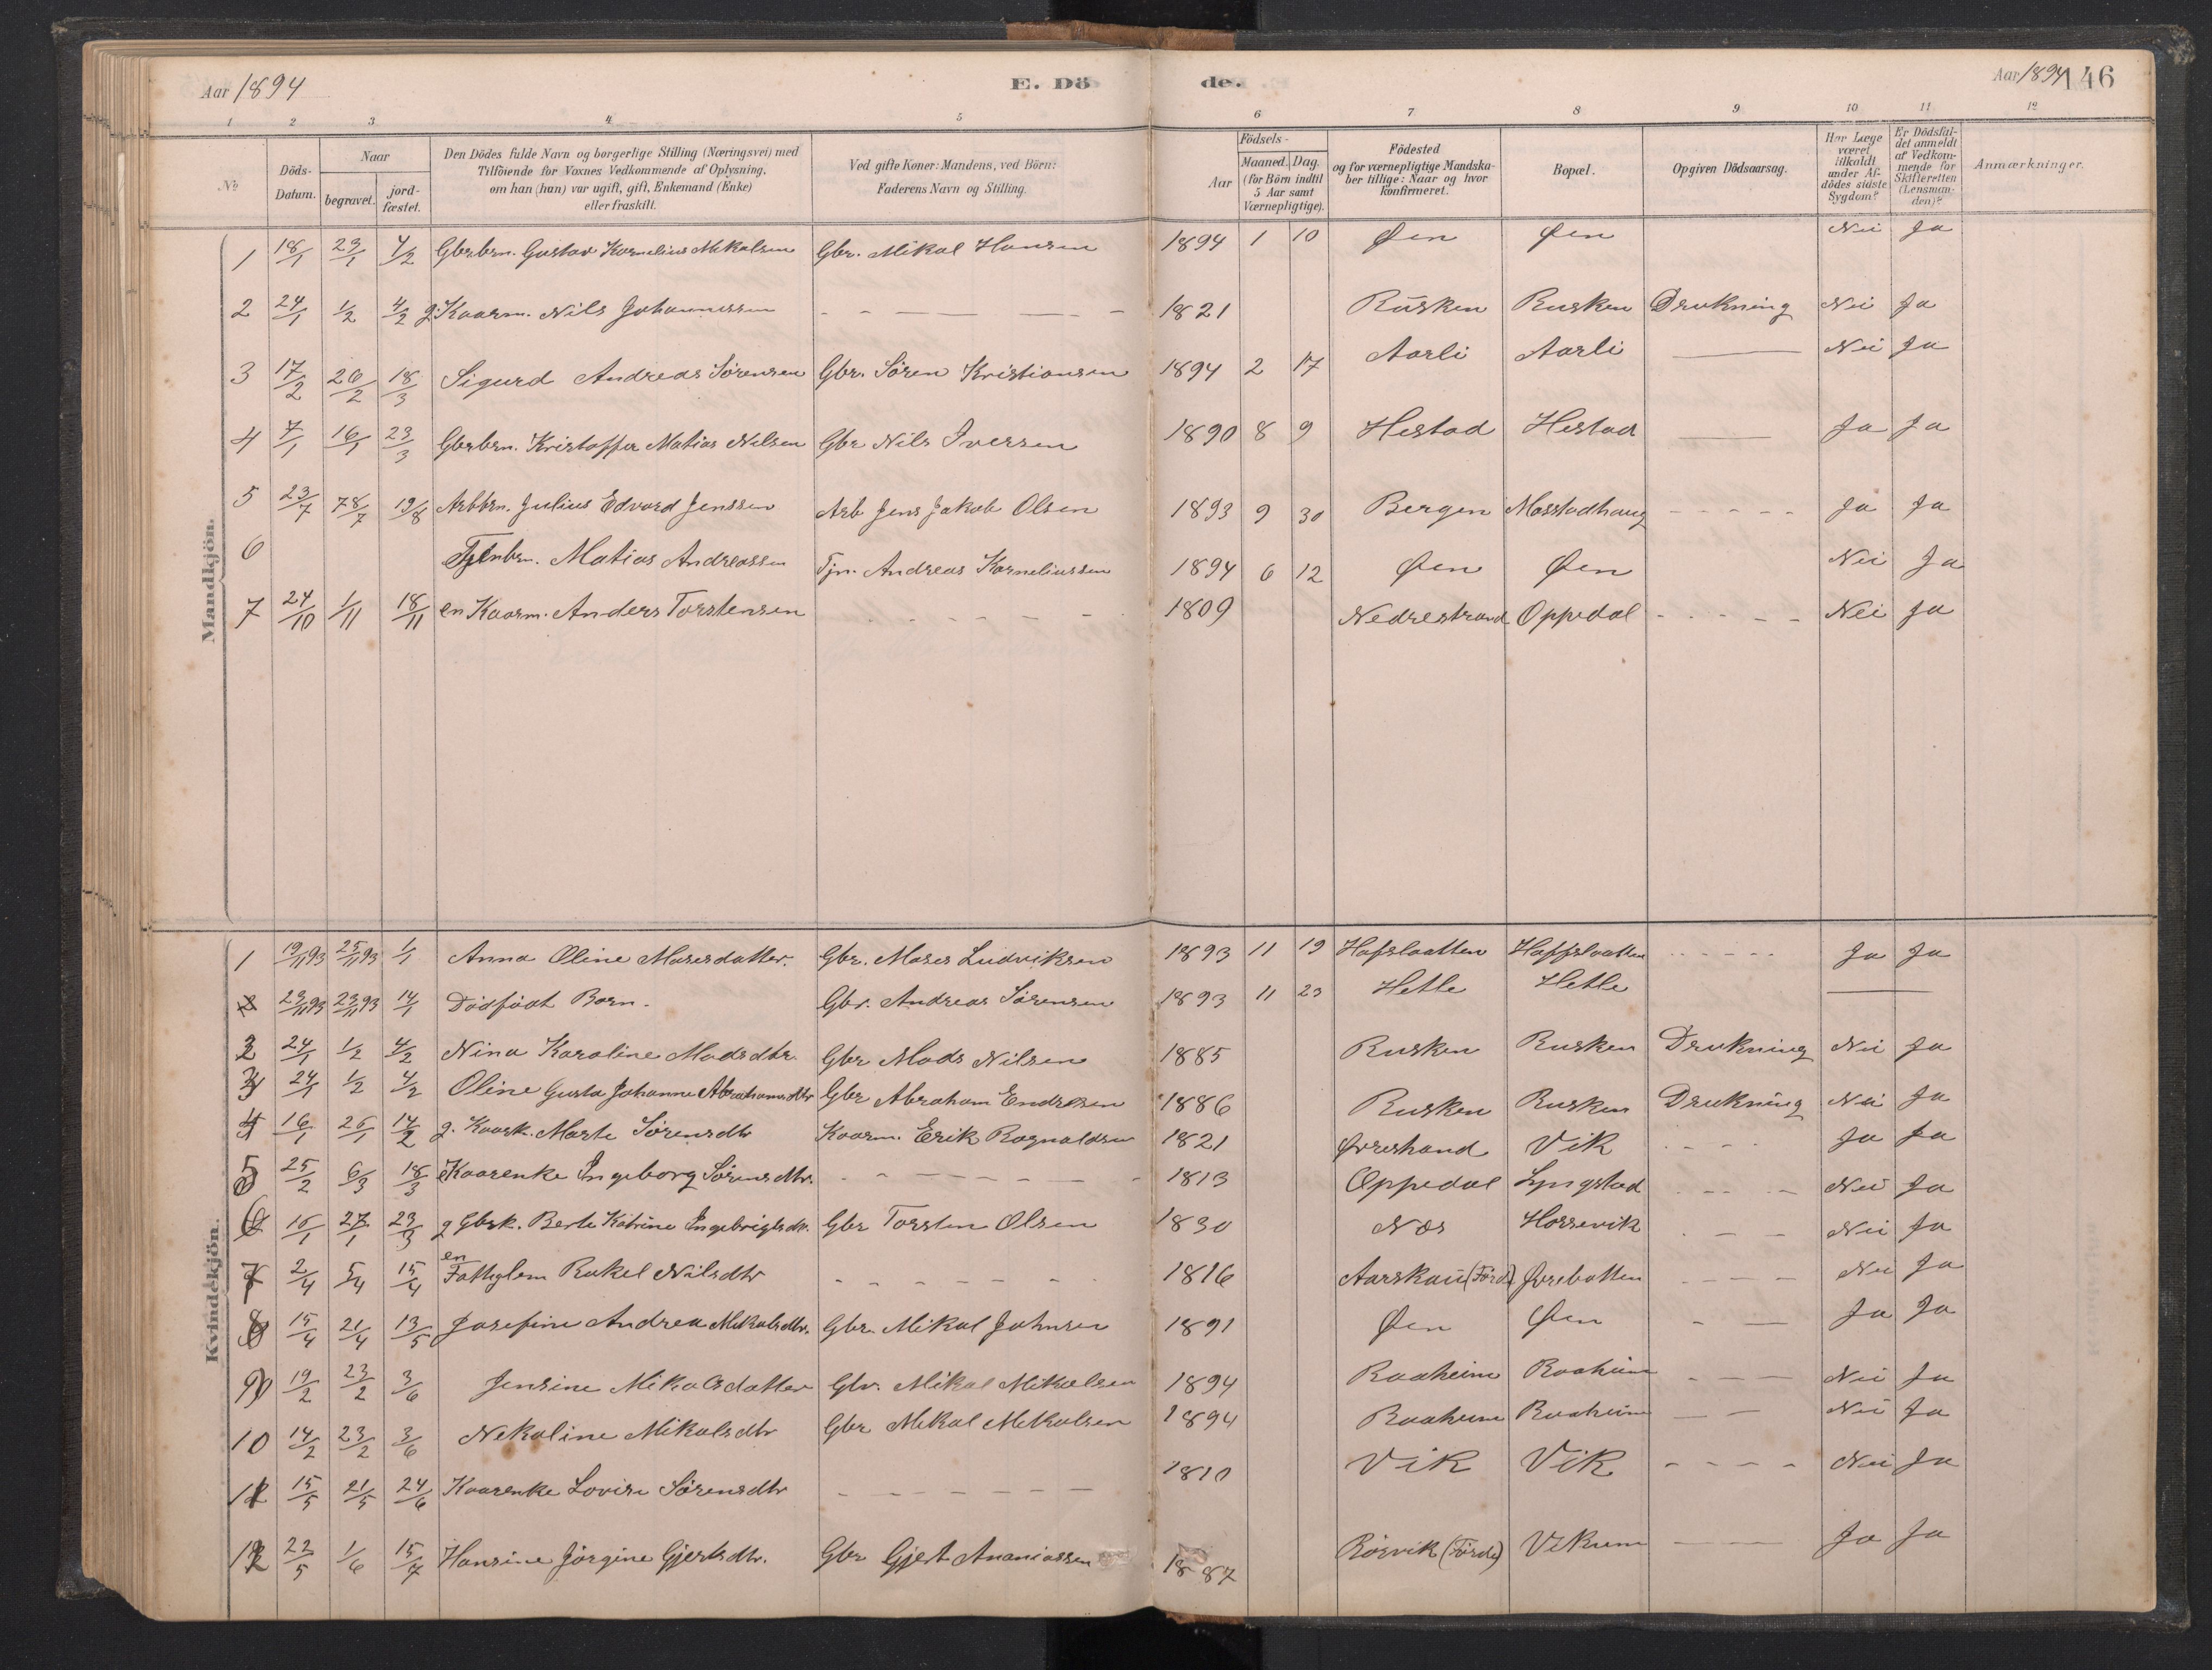 Aar 1894 E. Dö de. Aar 1894 146
1 2 3 4 5 6 7 8 9 10 11 12
№ Döds-Datum. Naar begravet. jord-fæstet. Den Dödes fulde Navn og borgerlige Stilling (Næringsvei) med Tilföiende for Voxnes Vedkommende af Oplysning, om han (hun) var ugift, gift, Enkemand (Enke) eller fraskilt. Ved gifte Koner: Mandens, ved Börn: Faderens Navn og Stilling. Födsels- Aar Maaned. Dag. (for Börn indtil 5 Aar samt Værnepligtige). Födested og for værnepligtige Mandskaber tillige: Naar og hvor konfirmeret. Bopæl. Opgiven Dödsaarsag. Har Læge været tilkaldt under Afdödes sidste Sygdom? Er Dödsfaldet anmeldt af Vedkommende for Skifteretten (Lensmanden)? Anmærkninger.
Mandkjön.
1 18/1 23/1 4/2 Gbrbrn. Gustav Kornelius Mikalsen Gbr. Mikal Hansen 1894 1 10 Øen Øen Nei Ja
2 24/1 1/2 4/2 g. Kaarm. Nils Johannessen - - - - - 1821 Rusken Rusken Drukning Nei Ja
3 17/2 26/2 18/3 Sigurd Andreas Sörensen Gbr. Sören Kristiansen 1894 2 17 Aarli Aarli — Nei Ja
4 7/1 16/1 23/3 Gbrbrn. Kristoffer Matias Nilsen Gbr Nils Iversen 1890 8 9 Hestad Hestad — Ja Ja
5 23/7 28/7 19/8 Arbbrn. Julius Edvard Jenssen Arb Jens Jakob Olsen 1893 9 30 Bergen Masstadhaug - - - - - Ja Ja
6 Tjenbrn. Matias Andreassen Tjn. Andreas Korneliussen 1894 6 12 Øen Øen Nei Ja
7 24/10 1/11 18/11 en Kaarm. Anders Torstensen - - - - - 1809 Nedrestrand Oppedal - - - - Nei Ja
Kvindekjön.
1 19/11 93 25/11 93 1/1 Anna Oline Mosesdatter. Gbr. Moses Ludviksen 1893 11 19 Hafslaatten Haffslaatten - - - - - Ja Ja
2 23/11 93 23/11 93 14/1 Dödfödt Barn. Gbr. Andreas Sörensen 1893 11 23 Hetle Hetle —
2 24/1 1/2 4/2 Nina Karoline Madsdtr. Gbr Mads Nilsen 1885 Rusken Rusken Drukning Nei Ja
3 24/1 1/2 4/2 Oline Gusta Johanne Abrahamsdtr Gbr Abraham Endresen 1886 Rusken Rusken Drukning Nei Ja
4 16/1 26/1 14/2 g. Kaark. Marte Sörensdtr Kaarm. Erik Ragnaldsen 1821 Øvrestrand Vik - - - Ja Ja
5 25/2 6/3 18/3 Kaarenke Ingeborg Sörensdtr. - - - - - - 1813 Oppedal Lyngstad - - - Nei Ja
6 16/1 27/1 23/3 g Gbrk. Berte Katrine Ingebrigtsdtr. Gbr Torsten Olsen 1830 Næs Horsevik - - - Nei Ja
7 2/4 5/4 15/4 en Fattiglem Rakel Nilsdtr - - - - - - 1816 Aarskau (Förde) Øvrebotten - - - - Nei Ja
8 15/4 21/4 13/5 Josefine Andrea Mikalsdtr. Gbr. Mikal Johnsen 1891 Øen Øen - — Ja Ja
9 19/2 23/2 3/6 Jensine Mikalsdatter Gbr. Mikal Mikalsen 1894 Raaheim Raaheim - - - - Nei Ja
10 14/2 23/2 3/6 Nekoline Mikalsdtr Gbr Mikal Mikalsen 1894 Raaheim Raaheim - — Nei Ja
11 15/5 21/5 24/6 Kaarenke Lovise Sörensdtr - - - - - - 1810 Vik Vik - - - - Nei Ja
12 22/5 1/6 15/7 Hansine Jörgine Gjertsdtr. Gbr Gjert Ananiassen 1887 Rörvik (Förde) Vikum — Ja Ja